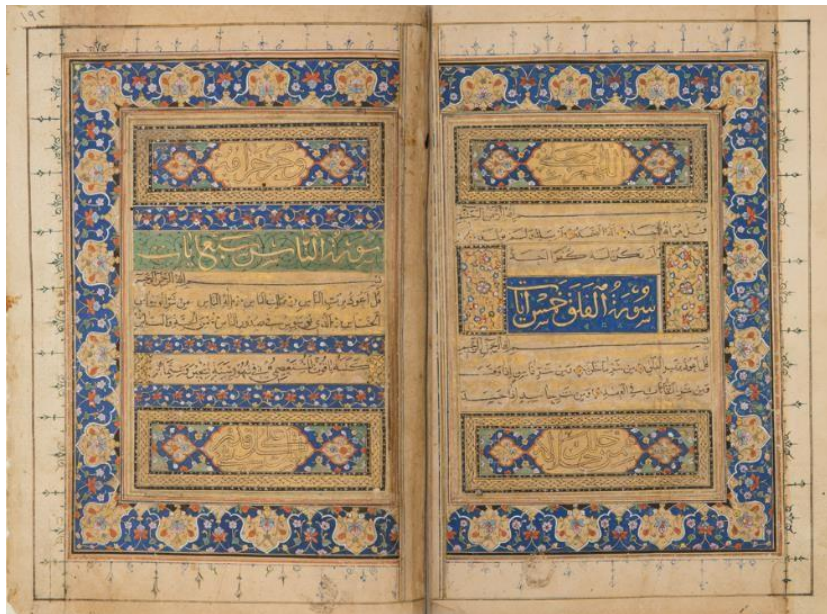 بسم الله الرحمن الرحيم
قل هو الله احد الله الصمد لم يلد ولم يولد
ولم يكن له كفوا احد
سورة الفلق خمس آيات
بسم الله الرحمن الرحيم
قل اعوذ برب الفلق من شر ما خلق ومن شر غاسق اذا وقب
ومن شر النفاثات في العقد ومن شر حاسد اذا حسد
١٩٢
سورة الناس سبع ايات
بسم الله الرحمن الرحيم
قل اعوذ برب الناس ملك الناس اله الناس من شر الوسواس
الخناس الذي يوسوس في صدور الناس من الجنة والناس
كتبه ياقوت المستعصمي في شهور سنة وستمائة